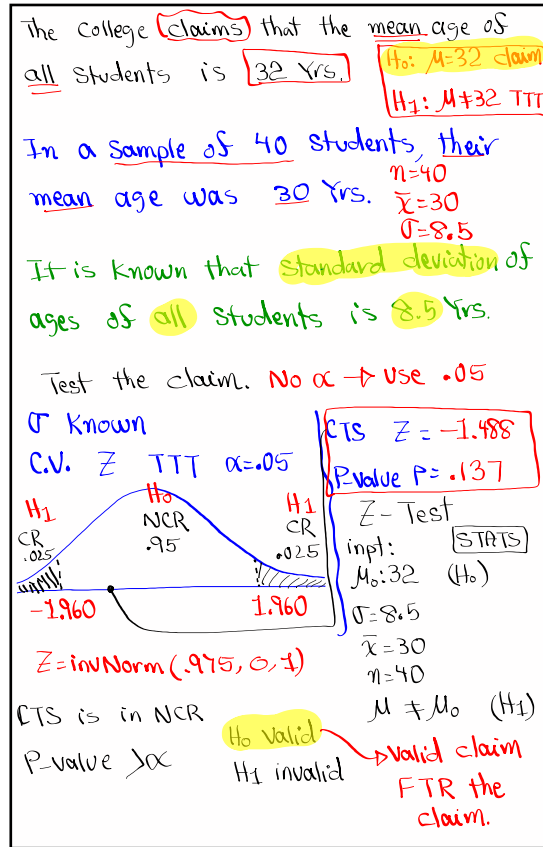 The College claims that the mean age of
all Students is 32 Yrs.
H₀: μ=32 claim
H1: μ≠32 TTT
In a Sample of 40 Students, their
mean age was 30 Yrs.
n=40
x̄=30
σ=8.5
It is Known that Standard deviation of
ages of all Students is 8.5 Yrs.
Test the claim. No α → Use .05
σ Known
C.V. Z TTT α=.05
CTS Z = -1.488
P-value P= .137
H1
CR
.025
H₀
NCR
.95
H1
CR
.025
-1.960
1.960
Z=invNorm(.975, 0, 1)
Z-Test
inpt: STATS
μ₀:32 (H₀)
σ=8.5
x̄=30
n=40
μ ≠ μ₀ (H1)
CTS is in NCR
P-value >α
H₀ Valid
H1 invalid
Valid claim
FTR the
claim.